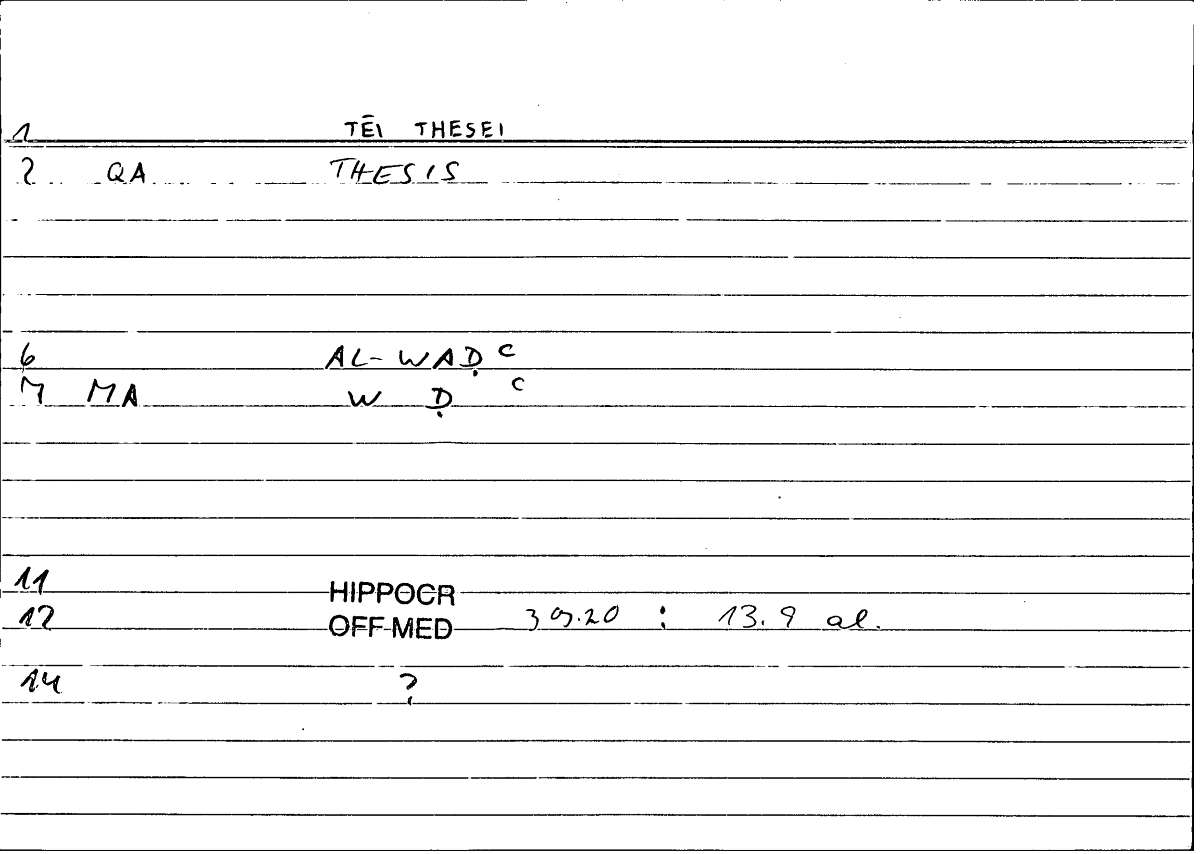 1 TĒI THESEI
2 QA THESIS
6 AL-WAḌ ᶜ
7 MA W Ḍ ᶜ
11 HIPPOCR
12 OFF-MED 39.20 : 13.9 al.
14 ?